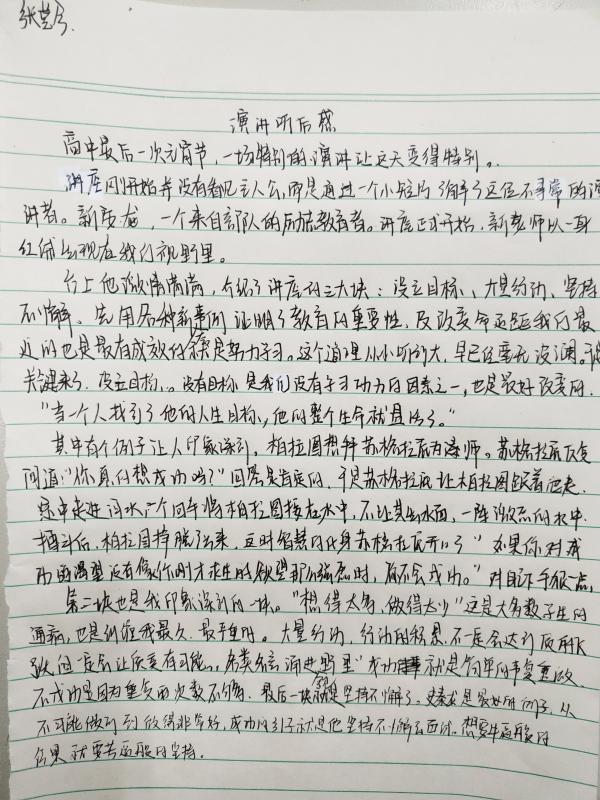 张芸
演讲听后感
高中最后一次元宵节,一场特别的演讲让这天变得特别。
讲座刚开始并没有看见主人公,而是通过一个小短片了解了这位不寻常的演
讲者。新龙,一个来自部队的励志教育者。讲座正式开始,新老师以一身
红绒出现在我们视野里。
台上他激情满满,介绍了讲座的三大块:设立目标、大量行动、坚持
不懈。先用各种新案例证明了教育的重要性,及改变命运距我们最
近的也是最有成效的就是努力学习。这个道理从小听到大,早已经毫无波澜。
关键来了,设立目标。没有目标是我们没有学习动力的因素之一,也是最好改变的。
"当一个人找到了他的人生目标,他的整个生命就显出了。"
其中有个例子让人印象深刻,柏拉图想拜苏格拉底为老师。苏格拉底反复
问道:"你真的想成功吗?"回答是肯定的,于是苏格拉底让柏拉图跟着他走,
走进河水,一个回手将柏拉图按在水中,不让其出水面,一阵激烈的水中
挣斗后,柏拉图挣脱出来,这时智慧的化身苏格拉底开口了"如果你对成
功的渴望没有像你刚才求生的欲望那么强烈时,你不会成功。"
第二块也是我印象深刻的一块。"想得太多,做得太少"这是大多数学生的
通病,也是纠缠我最久、最严重的。大量行动,行动的积累不一定会达到
但一定会让你更有可能。"成功就是简单的事重复做,
不成功是因为重复的次数不够。最后一块就是坚持不懈了。
不可能做到到做得非常好,成功的例子就是他坚持不懈去面试。想要
结果就要 的坚持。